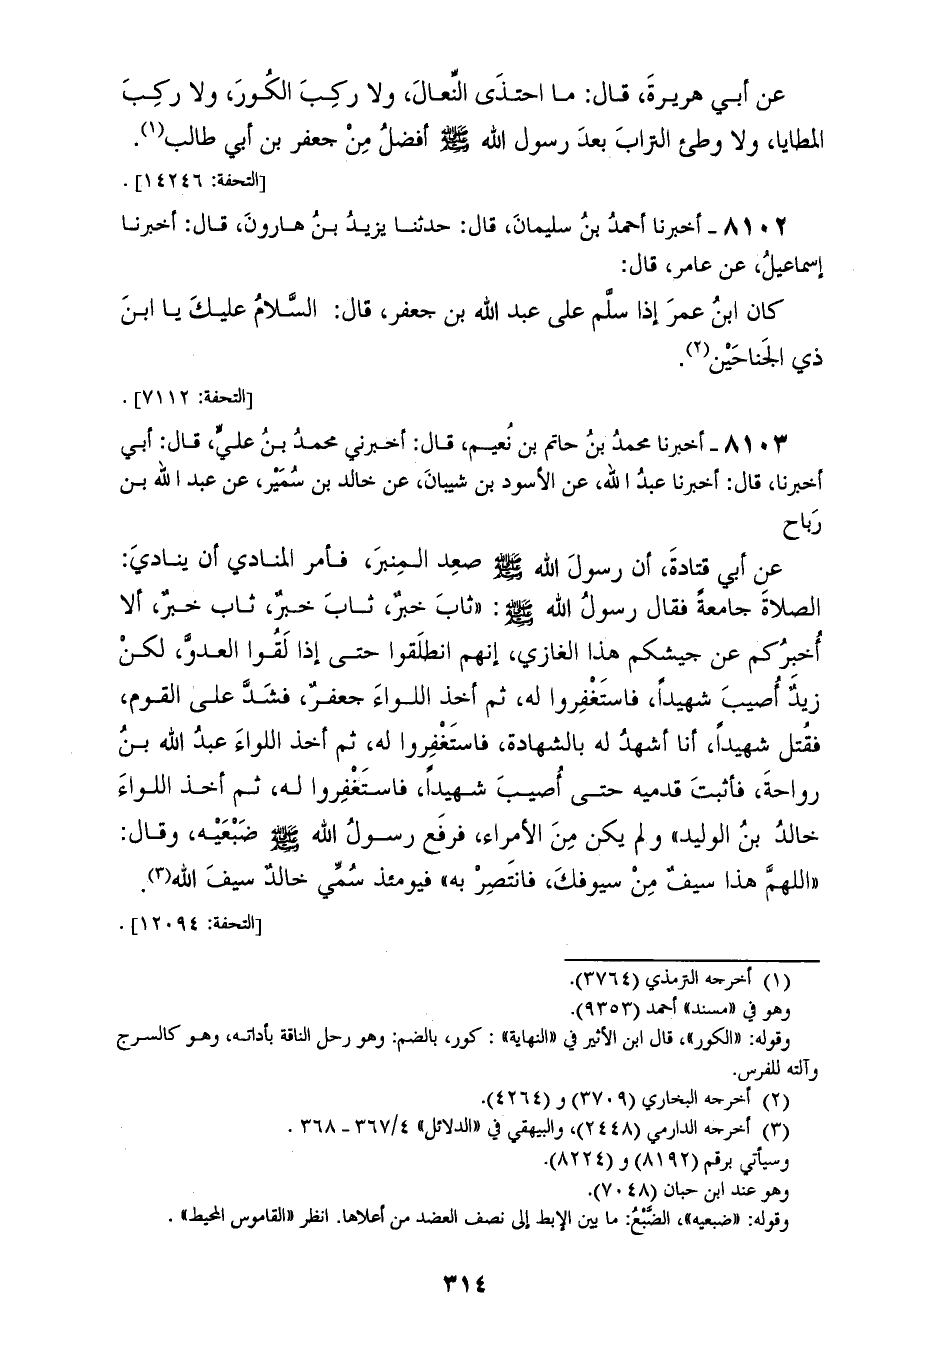 عن أبي هريرةَ، قال: ما احتذَى النِّعالَ، ولا ركِبَ الكُورَ، ولا ركِبَ
المطايا، ولا وطئ الترابَ بعدَ رسول الله ﷺ أفضلُ مِنْ جعفر بن أبي طالب(١).
[التحفة: ١٤٢٤٦] .
٨١٠٢ ـ أخبرنا أحمدُ بنُ سليمانَ، قال: حدثنا يزيدُ بنُ هارونَ، قال: أخبرنا
إسماعيلُ، عن عامر، قال:
كان ابنُ عمرَ إذا سلَّم على عبد الله بن جعفر، قال: السَّلامُ عليكَ يا ابنَ
ذي الجَناحَيْن(٢).
[التحفة: ٧١١٢] .
٨١٠٣ ـ أخبرنا محمدُ بنُ حاتم بن نُعيم، قال: أخبرني محمدُ بنُ عليٍّ، قال: أبي
أخبرنا، قال: أخبرنا عبدُ الله، عن الأسود بن شيبانَ، عن خالد بن سُمَيْر، عن عبد الله بن
رَباح
عن أبي قتادةَ، أن رسولَ الله ﷺ صعِد المِنبرَ، فأمر المنادي أن يناديَ:
الصلاةَ جامعةً فقال رسولُ الله ﷺ: «ثابَ خبرٌ، ثابَ خبرٌ، ثاب خبرٌ، ألا
أُخبرُكم عن جيشكم هذا الغازي، إنهم انطلَقوا حتى إذا لَقُوا العدوَّ، لكنْ
زيدٌ أُصيبَ شهيداً، فاستَغْفِروا له، ثم أخذ اللواءَ جعفرٌ، فشَدَّ على القوم،
فقُتل شهيداً، أنا أشهدُ له بالشهادة، فاستَغْفِروا له، ثم أخذ اللواءَ عبدُ الله بنُ
رواحةَ، فأثبتَ قدميه حتى أُصيبَ شهيداً، فاستَغْفِروا له، ثم أخذ اللواءَ
خالدُ بنُ الوليد» ولم يكن مِنَ الأمراء، فرفَع رسولُ الله ﷺ ضَبْعَيْه، وقال:
«اللهمَّ هذا سيفٌ مِنْ سيوفكَ، فانتَصِرْ به» فيومئذ سُمِّي خالدٌ سيفَ الله(٣).
[التحفة: ١٢٠٩٤] .
(١) أخرجه الترمذي (٣٧٦٤).
وهو في «مسند» أحمد (٩٣٥٣).
وقوله: «الكور»، قال ابن الأثير في «النهاية» : كور، بالضم: وهو رحل الناقة بأداته، وهو كالسرج
وآلته للفرس.
(٢) أخرجه البخاري (٣٧٠٩) و (٤٢٦٤).
(٣) أخرجه الدارمي (٢٤٤٨)، والبيهقي في «الدلائل» ٣٦٧/٤ ـ ٣٦٨ .
وسيأتي برقم (٨١٩٢) و (٨٢٢٤).
وهو عند ابن حبان (٧٠٤٨).
وقوله: «ضبعيه»، الضَّبْعُ: ما بين الإبط إلى نصف العضد من أعلاها. انظر «القاموس المحيط» .
٣١٤